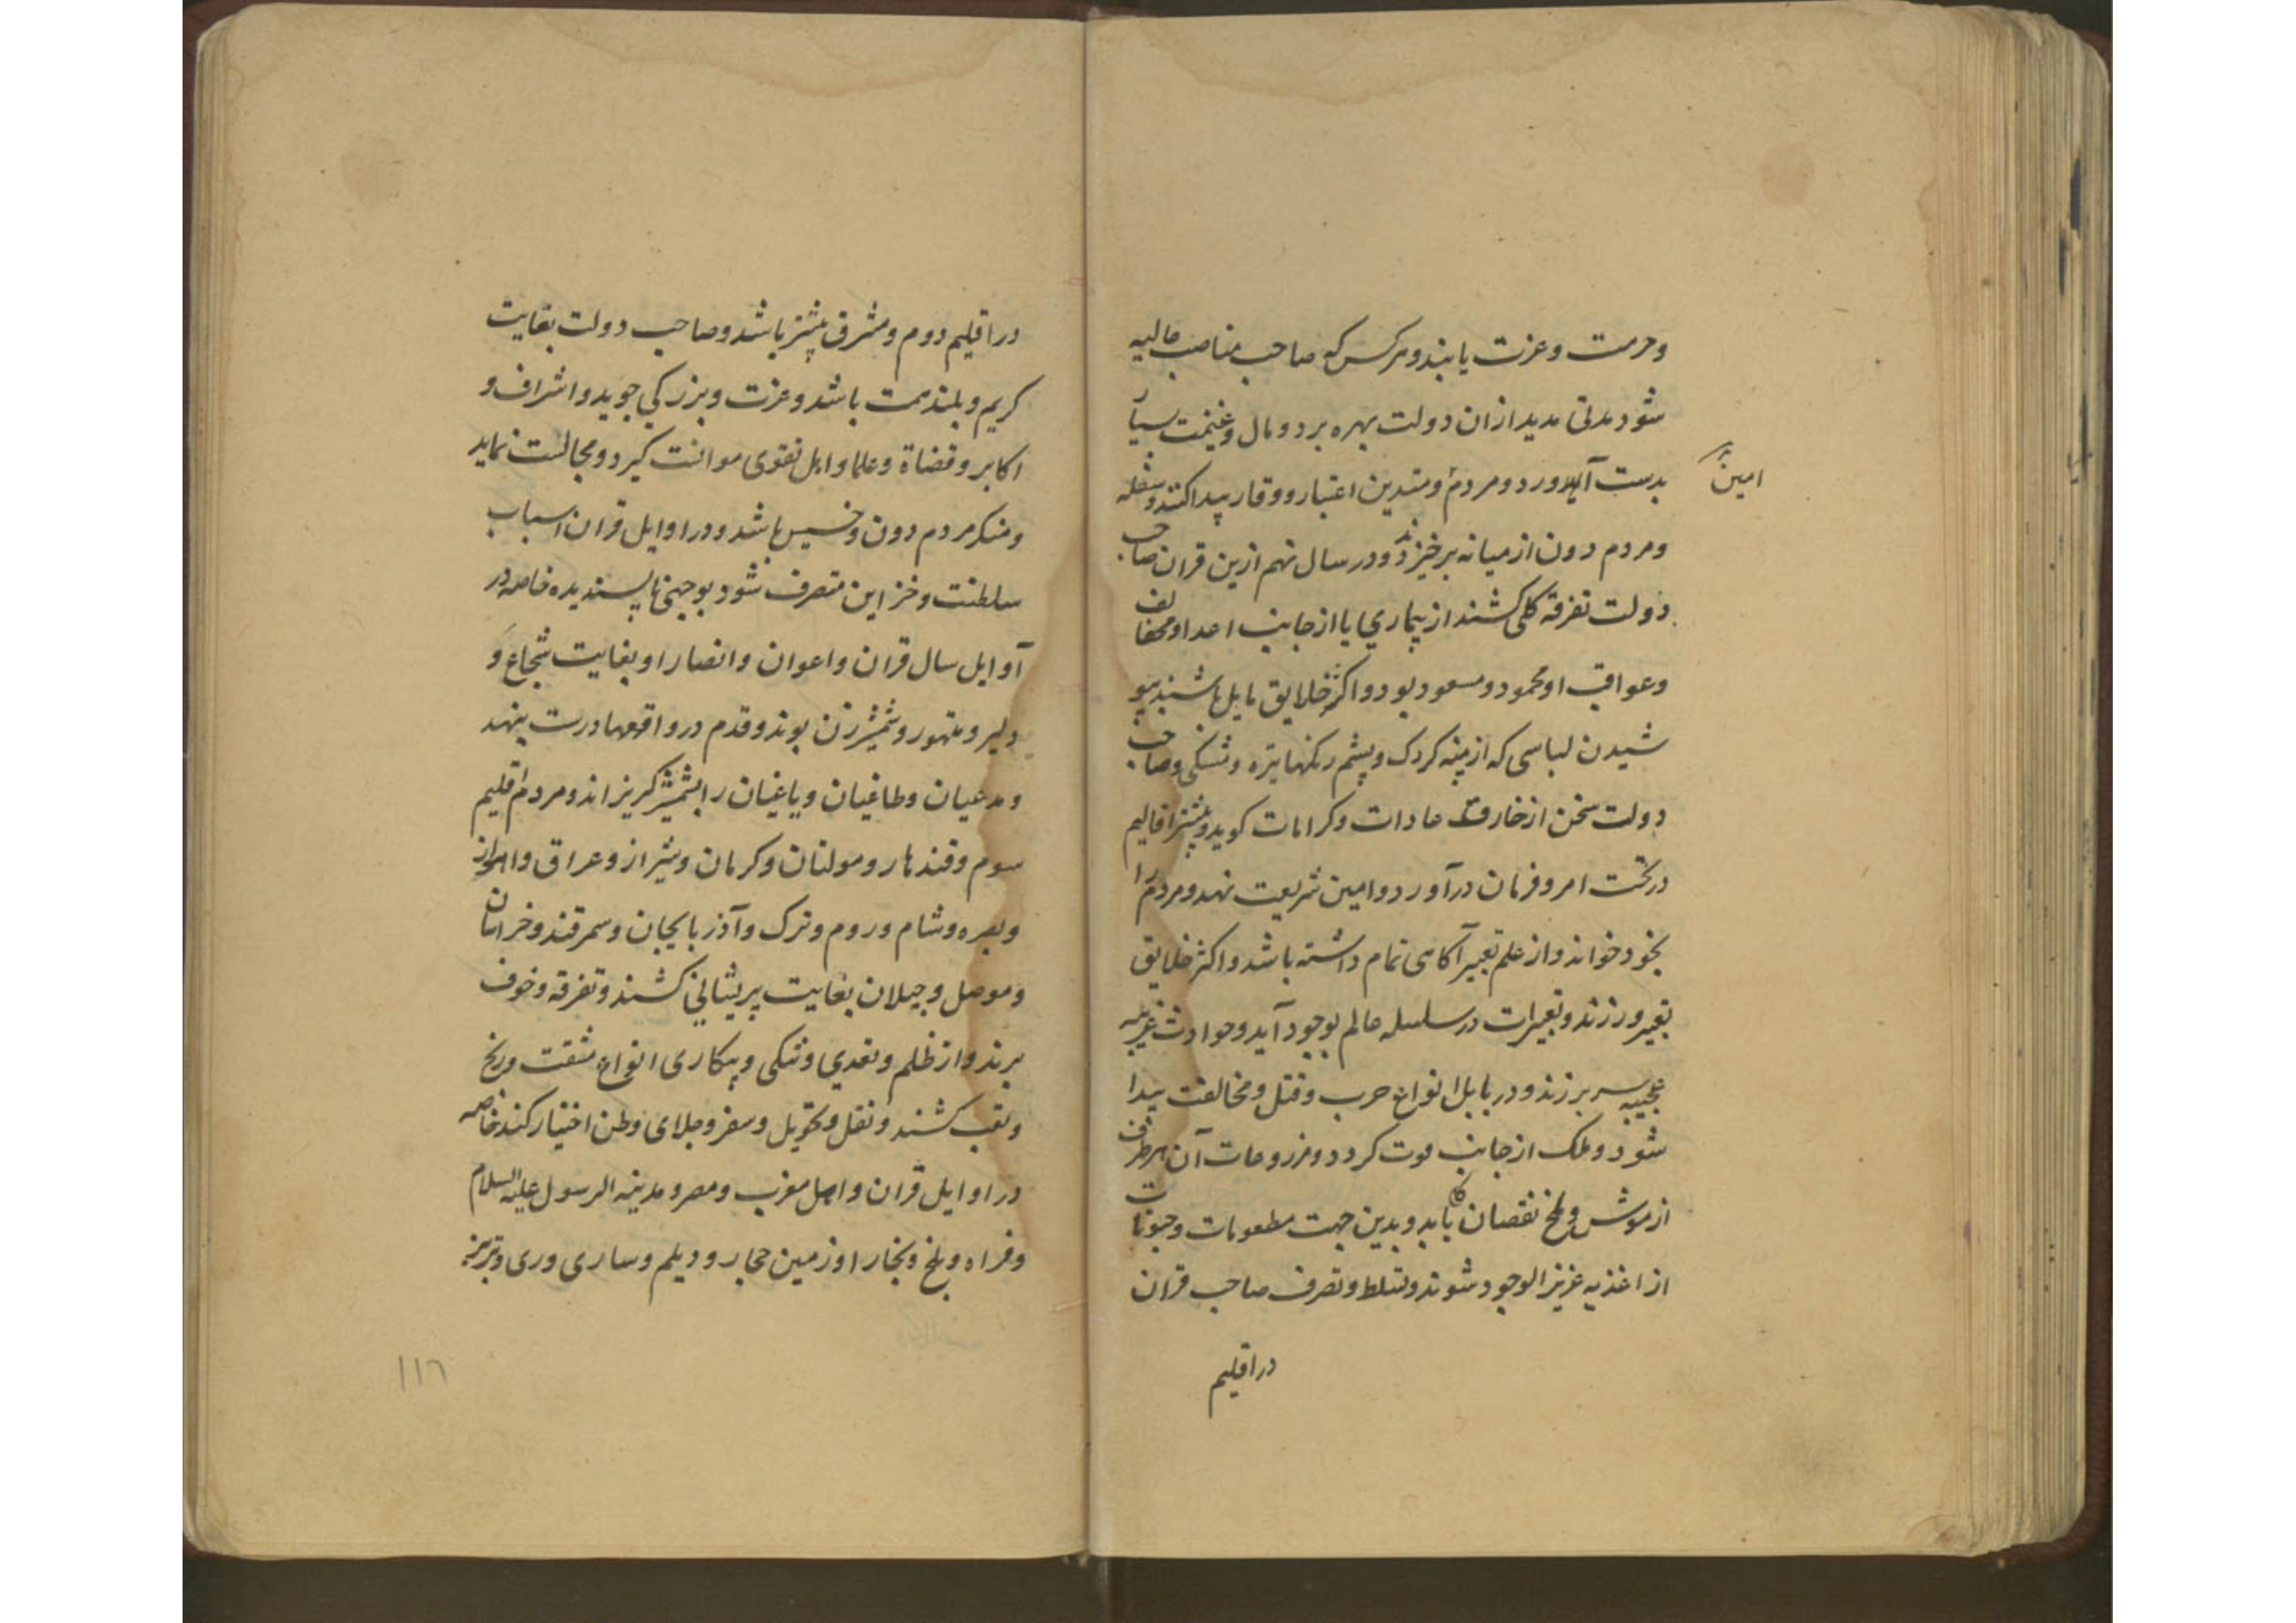 وحرمت وعزت یابند وهرکس که صاحب مناصب عالیه
شود مدتی مدید ازان دولت بهره برد ومال وغنیمت بسیار
بدست آورد ومردم ومتدین اعتبار ووقار پیدا کنند وسفله
امین
ومردم دون از میانه برخیزند ودر سال نهم ازین قران صاحب
دولت تفرقه کلی کشند از بیماری یا از جانب اعدا ومخالف
وعواقب او محمود ومسعود بود واکثر خلایق مایل باشند بپو
شیدن لباسی که از پنبه کردک وپشم رنکها تیره ومشکی وصاحب
دولت سخن از خارق عادات وکرامات کوید وبیشتر اقالیم
در تحت امر وفرمان درآورد وامین شریعت نهد ومردم را
بخود خواند واز علم تعبیر آکاهی تمام داشته باشد واکثر خلایق
تعبیر ورزند وتغییرات در سلسله عالم بوجود آید وحوادث غریبه
عجیبه سر برزند ودر بابل انواع حرب وقتل ومخالفت پیدا
شود وملک از جانب فوت کردد ومزروعات آن هر طرف
از موش وملخ نقصان یابد وبدین جهت مطعومات وحبوبات
از اغذیه عزیز الوجود شوند وتسلط وتصرف صاحب قران
در اقلیم
در اقلیم دوم ومشرق بیشتر باشد وصاحب دولت بغایت
کریم وبلند همت باشد وعزت وبزرکی جوید واشراف و
اکابر وقضاة وعلما واهل تقوی موانست کیرد ومجالست نماید
ومنکر مردم دون وخسیس باشد ودر اوایل قران اسباب
سلطنت وخزاین متصرف شود بوجهی ناپسندیده خاصه در
اوایل سال قران واعوان وانصار او بغایت شجاع و
دلیر ومتهور وشمشیر زن بوند وقدم در واقعها درست بنهد
ومدعیان وطاغیان ویاغیان را بشمشیر کریزاند ومردم اقلیم
سوم وقندهار ومولتان وکرمان وشیراز وعراق واهواز
وبصره وشام وروم وترک وآذربایجان وسمرقند وخراسان
وموصل وجیلان بغایت پریشانی کشند وتفرقه وخوف
برند واز ظلم وتعدی وتنکی وبیکاری انواع مشقت ورنج
وتعب کشند ونقل وتحویل وسفر وجلای وطن اختیار کنند خاصه
در اوایل قران واهل مغرب ومصر ومدینه الرسول علیه السلام
وفراه وبلخ وبخارا وزمین حجاز ودیلم وساری وری وتبریز
۱۱٦